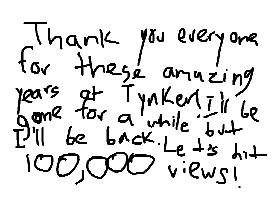 Thank you everyone
for these amazing
years at Tynker! I'll be
gone for a while but
I'll be back. Lets hit
100,000 views!